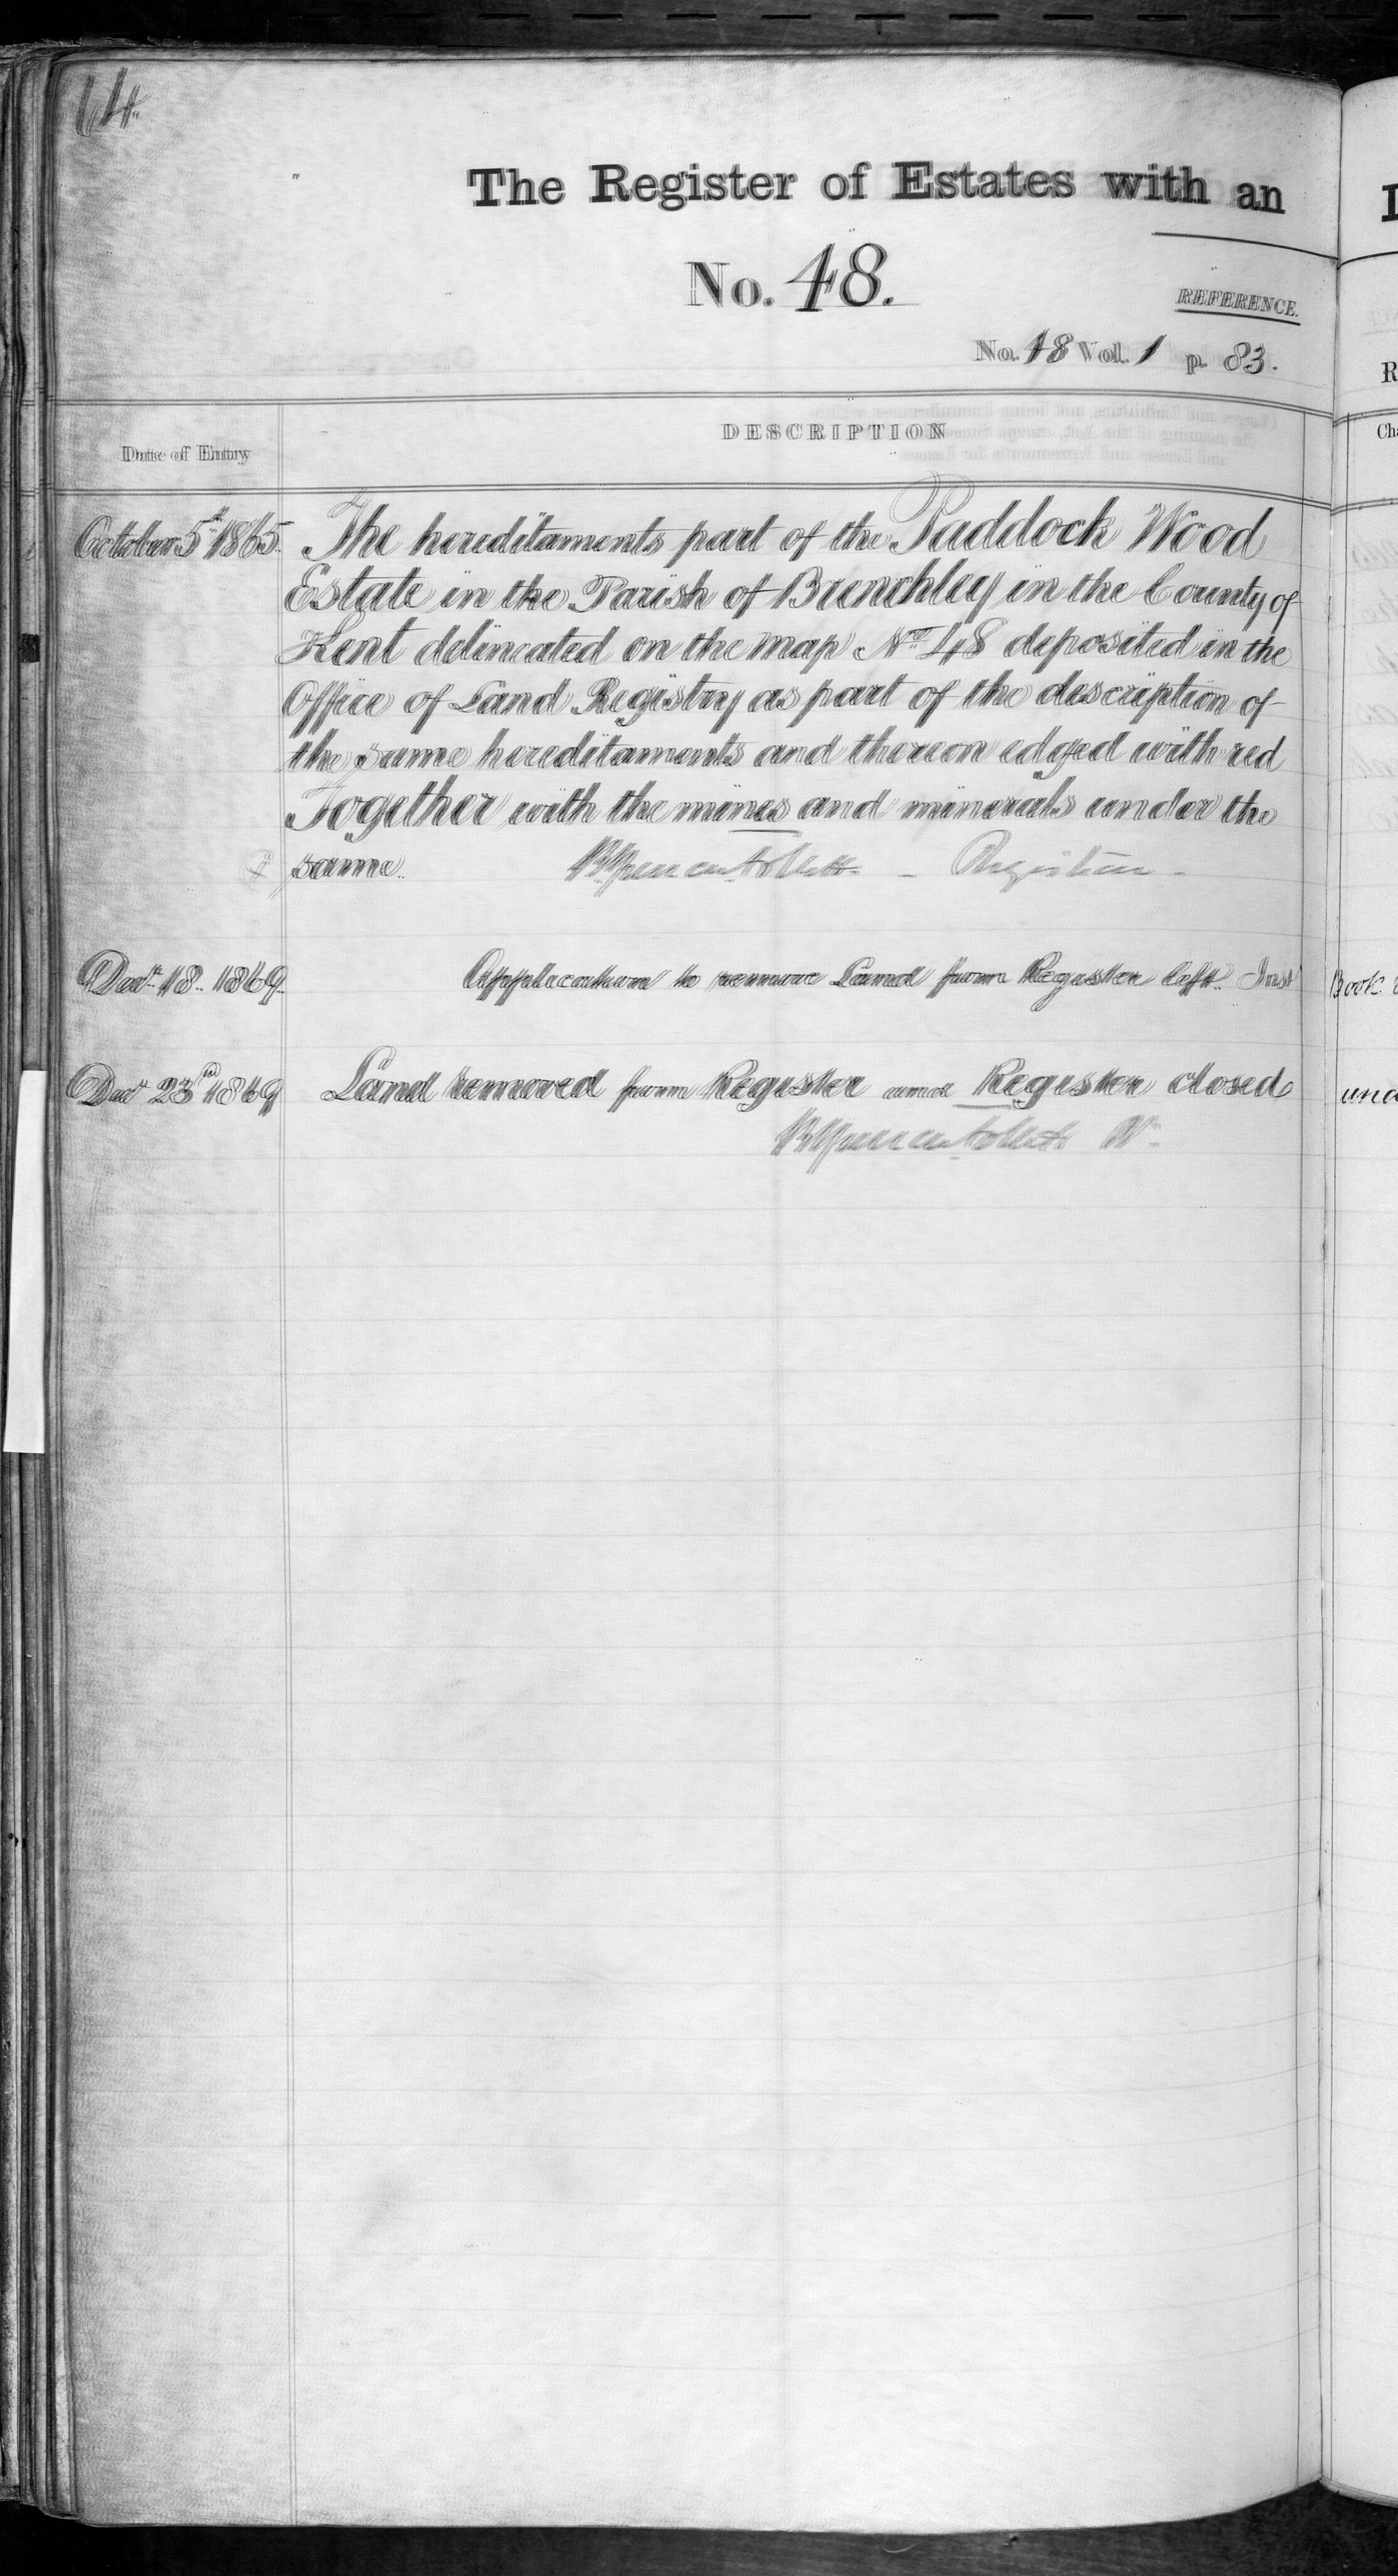 14
The Register of Estates with an
No. 48.
REFERENCE.
No. 48 Vol. 1 p. 83.
Date of Entry
DESCRIPTION
October 5th 1865. The hereditaments part of the Paddock Wood
Estate in the Parish of Brenchley in the County of
Kent delineated on the map No. 48 deposited in the
Office of Land Registry as part of the description of
the same hereditaments and thereon edged with red
Together with the mines and minerals under the
same. Registrar
Decr. 18. 1869. Application to remove Land from Register left. Inst Book
Decr. 23rd 1869 Land removed from Register and Register closed